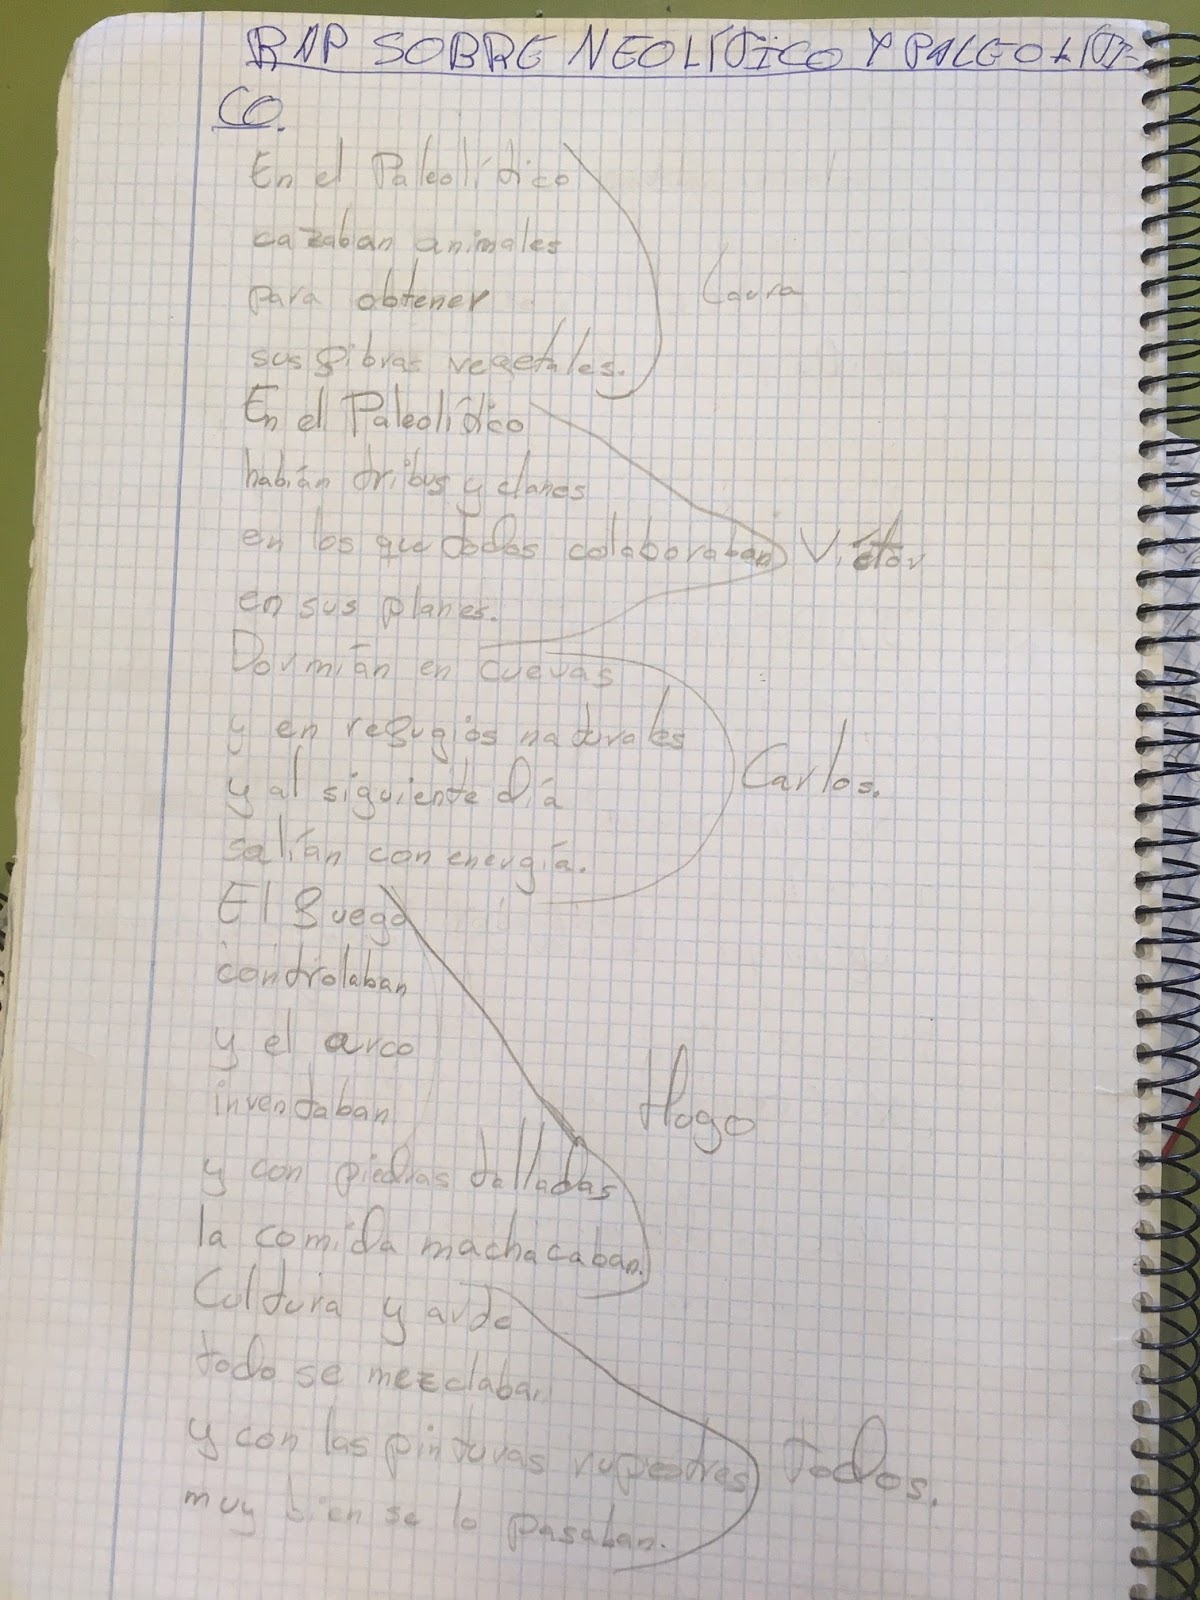 RAP SOBRE NEOLÍTICO Y PALEOLÍTI-
CO.
En el Paleolítico
cazaban animales
para obtener
Laura
sus fibras vegetales.
En el Paleolítico
habían tribus y clanes
en los que todos colaboraban
Víctor
en sus planes.
Dormían en cuevas
y en refugios naturales
y al siguiente día
Carlos.
salían con energía.
El fuego
controlaban
y el arco
inventaban
Hugo
y con piedras talladas
la comida machacaban.
Cultura y arte
todo se mezclaban
y con las pinturas rupestres
todos.
muy bien se lo pasaban.